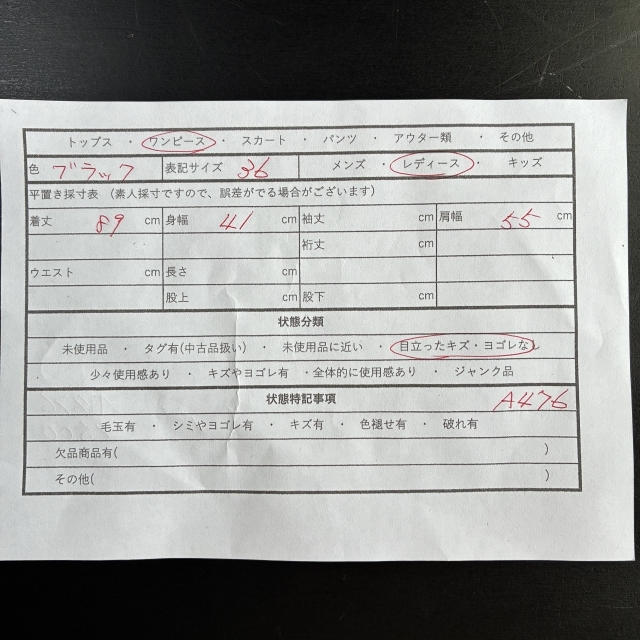 トップス ・ ワンピース ・ スカート ・ パンツ ・ アウター類 ・ その他
色 ブラック 表記サイズ 36 メンズ ・ レディース ・ キッズ
平置き採寸表 (素人採寸ですので、誤差がでる場合がございます)
着丈 89 cm 身幅 41 cm 袖丈 cm 肩幅 55 cm
裄丈 cm
ウエスト cm 長さ cm
股上 cm 股下 cm
状態分類
未使用品 ・ タグ有(中古品扱い) ・ 未使用品に近い ・ 目立ったキズ・ヨゴレなし
少々使用感あり ・ キズやヨゴレ有 ・全体的に使用感あり ・ ジャンク品
状態特記事項 A476
毛玉有 ・ シミやヨゴレ有 ・ キズ有 ・ 色褪せ有 ・ 破れ有
欠品商品有( )
その他( )